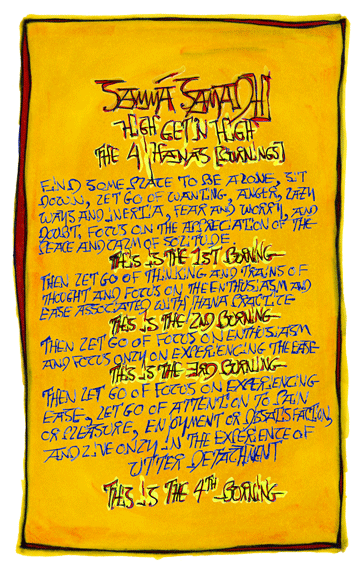 SAMMÁ SAMADHI
HIGH GET'N HIGH
THE 4 JHANAS [BURNINGS]
FIND SOME PLACE TO BE ALONE, SIT
DOWN, LET GO OF WANTING, ANGER, LAZY
WAYS AND INERTIA, FEAR AND WORRY, AND
DOUBT, FOCUS ON THE APPRECIATION OF THE
PEACE AND CALM OF SOLITUDE.
THIS IS THE 1ST BORNING
THEN LET GO OF THINKING AND TRAINS OF
THOUGHT AND FOCUS ON THE ENTHUSIASM AND
EASE ASSOCIATED WITH JHANA PRACTICE
THIS IS THE 2ND BORNING
THEN LET GO OF FOCUS ON ENTHUSIASM
AND FOCUS ONLY ON EXPERIENCING THE EASE
THIS IS THE 3RD BORNING
THEN LET GO OF FOCUS ON EXPERIENCING
EASE, LET GO OF ATTENTION TO PAIN
OR PLEASURE, ENJOYMENT OR DISSATISFACTION,
AND LIVE ONLY IN THE EXPERIENCE OF
UTTER DETACHMENT
THIS IS THE 4TH BORNING